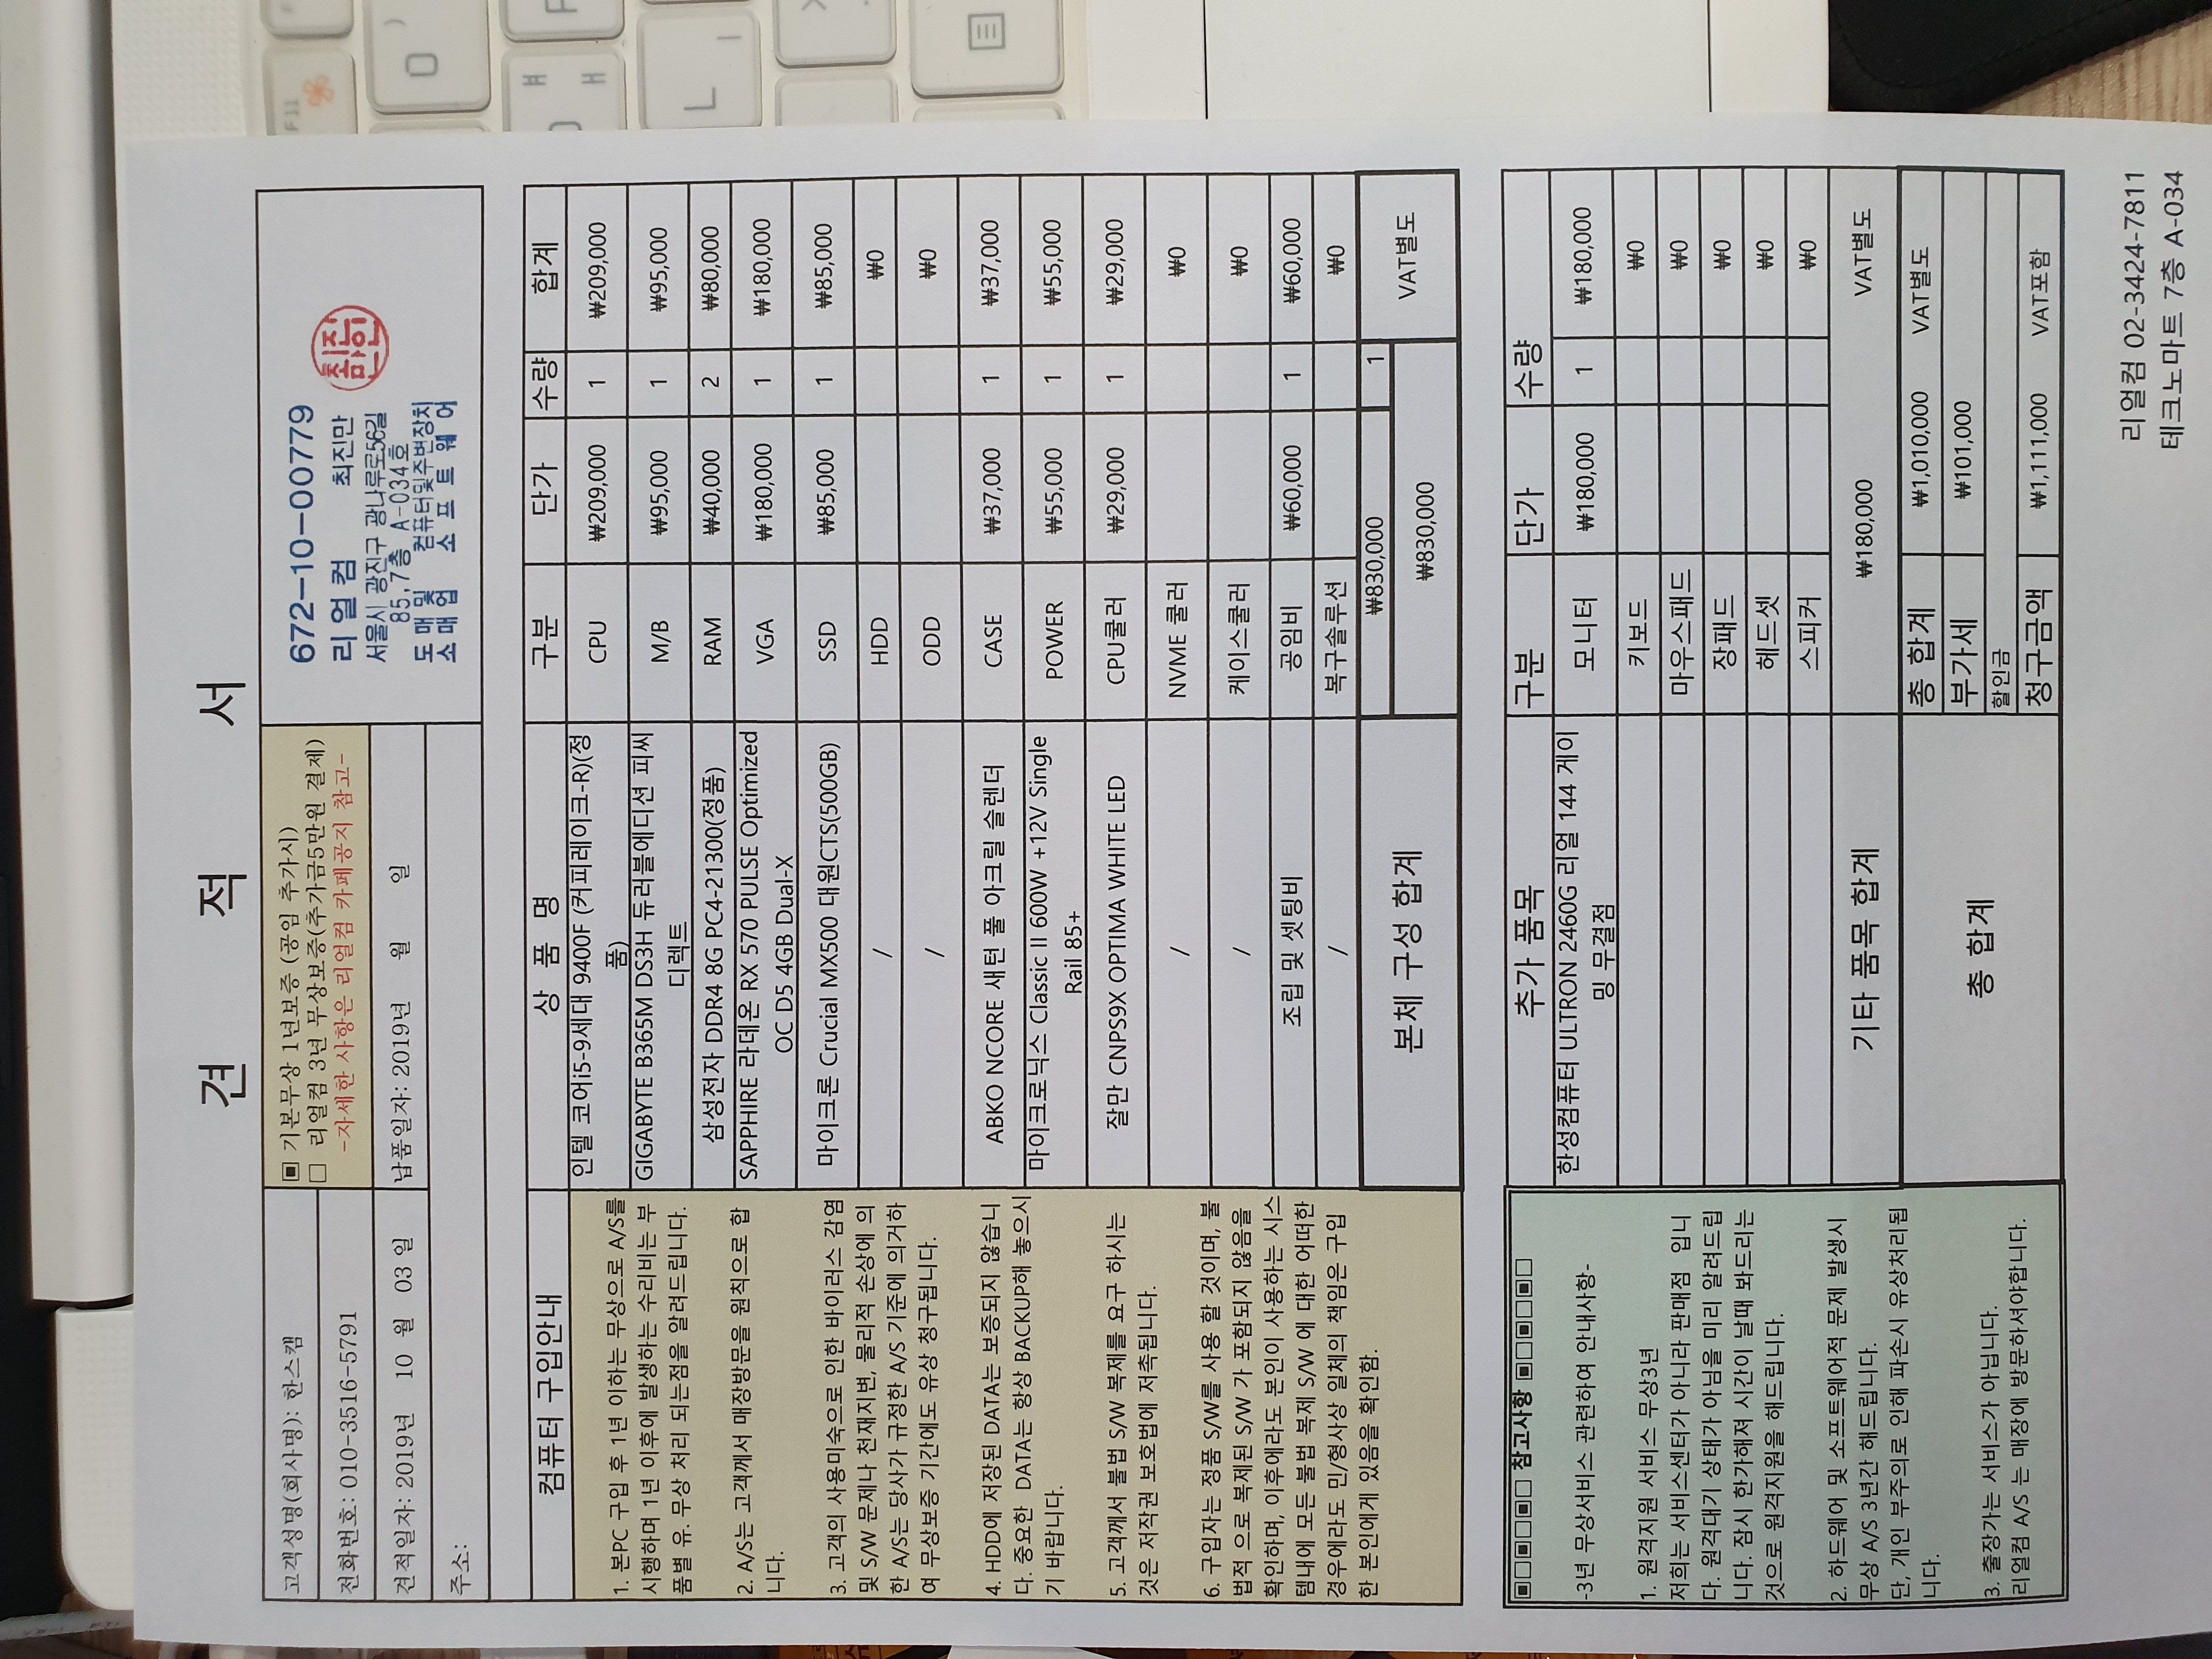 견 적 서
고객성명(회사명): 한스캠
전화번호: 010-3516-5791
견적일자: 2019년 10 월 03 일
주소:
▣ 기본무상 1년보증 (공임 추가시)
□ 리얼컴 3년 무상보증(추가금5만원 결제)
-자세한 사항은 리얼컴 카페공지 참고-
납품일자: 2019년 월 일
672-10-00779
리얼컴 최진만
서울시 광진구 광나루로56길
85, 7층 A-034호
도매및 컴퓨터및주변장치
소매업 소프트웨어
컴퓨터 구입안내
1. 본PC 구입 후 1년 이하는 무상으로 A/S를
시행하며 1년 이후에 발생하는 수리비는 부
품별 유. 무상 처리 되는점을 알려드립니다.
2. A/S는 고객께서 매장방문을 원칙으로 합
니다.
3. 고객의 사용미숙으로 인한 바이러스 감염
및 S/W 문제나 천재지변, 물리적 손상에 의
한 A/S는 당사가 규정한 A/S 기준에 의거하
여 무상보증 기간에도 유상 청구됩니다.
4. HDD에 저장된 DATA는 보증되지 않습니
다. 중요한 DATA는 항상 BACKUP해 놓으시
기 바랍니다.
5. 고객께서 불법 S/W 복제를 요구 하시는
것은 저작권 보호법에 저촉됩니다.
6. 구입자는 정품 S/W를 사용 할 것이며, 불
법적 으로 복제된 S/W 가 포함되지 않음을
확인하며, 이후에라도 본인이 사용하는 시스
템내에 모든 불법 복제 S/W 에 대한 어떠한
경우에라도 민/형사상 일체의 책임은 구입
한 본인에게 있음을 확인함.
상 품 명 구분 단가 수량 합계
인텔 코어i5-9세대 9400F (커피레이크-R)(정
품) CPU ₩209,000 1 ₩209,000
GIGABYTE B365M DS3H 듀러블에디션 피씨
디렉트 M/B ₩95,000 1 ₩95,000
삼성전자 DDR4 8G PC4-21300(정품) RAM ₩40,000 2 ₩80,000
SAPPHIRE 라데온 RX 570 PULSE Optimized
OC D5 4GB Dual-X VGA ₩180,000 1 ₩180,000
마이크론 Crucial MX500 대원CTS(500GB) SSD ₩85,000 1 ₩85,000
/ HDD ₩0
/ ODD ₩0
ABKO NCORE 새턴 풀 아크릴 슬렌더 CASE ₩37,000 1 ₩37,000
마이크로닉스 Classic II 600W +12V Single
Rail 85+ POWER ₩55,000 1 ₩55,000
잘만 CNPS9X OPTIMA WHITE LED CPU쿨러 ₩29,000 1 ₩29,000
/ NVME 쿨러 ₩0
/ 케이스쿨러 ₩0
조립 및 셋팅비 공임비 ₩60,000 1 ₩60,000
/ 복구솔루션 ₩0
본체 구성 합계 ₩830,000 1 VAT별도
₩830,000
▣□▣□▣□ 참고사항 ▣□▣□▣□
-3년 무상서비스 관련하여 안내사항-
1. 원격지원 서비스 무상3년
저희는 서비스센터가 아니라 판매점 입니
다. 원격대기 상태가 아님을 미리 알려드립
니다. 잠시 한가해져 시간이 날때 봐드리는
것으로 원격지원을 해드립니다.
2. 하드웨어 및 소프트웨어적 문제 발생시
무상 A/S 3년간 해드립니다.
단, 개인 부주의로 인해 파손시 유상처리됩
니다.
3. 출장가는 서비스가 아닙니다.
리얼컴 A/S 는 매장에 방문하셔야합니다.
추가 품목 구분 단가 수량
한성컴퓨터 ULTRON 2460G 리얼 144 게이
밍 무결점 모니터 ₩180,000 1 ₩180,000
키보드 ₩0
마우스패드 ₩0
장패드 ₩0
헤드셋 ₩0
스피커 ₩0
기타 품목 합계 ₩180,000 VAT별도
총 합계
총 합계 ₩1,010,000 VAT별도
부가세 ₩101,000
할인금
청구금액 ₩1,111,000 VAT포함
리얼컴 02-3424-7811
테크노마트 7층 A-034
F11
O
L